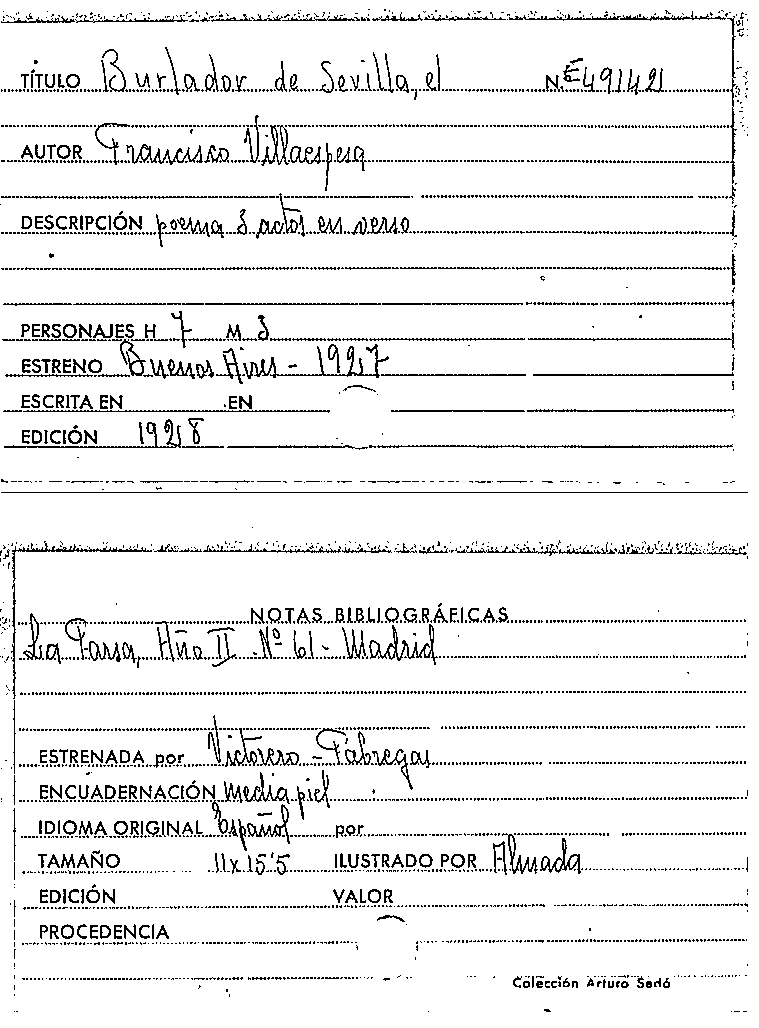 TÍTULO Burlador de Sevilla, el N.E 491421
AUTOR Francisco Villaespesa
DESCRIPCIÓN poema 3 actos en verso
PERSONAJES H 7 M 3
ESTRENO Buenos Aires - 1927
ESCRITA EN EN
EDICIÓN 1928
NOTAS BIBLIOGRÁFICAS
La Farsa, Año II Nº 61 - Madrid
ESTRENADA por Victorero - Fábregas
ENCUADERNACIÓN media piel
IDIOMA ORIGINAL Español por
TAMAÑO 11x15'5 ILUSTRADO POR Almada
EDICIÓN VALOR
PROCEDENCIA
Colección Arturo Sedó